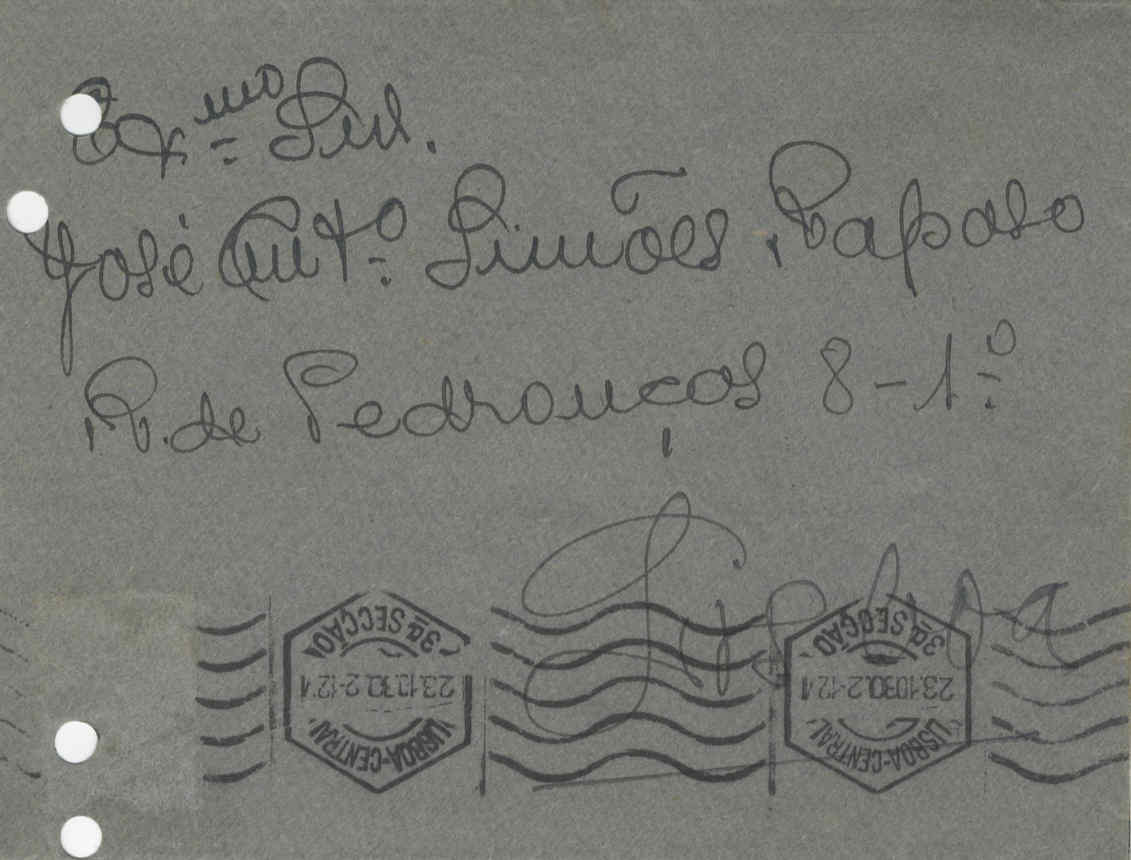 Exmo Snr.
José Anto Simões Raposo
R. de Pedrouços 8-1º
Lisboa
3ª SECÇÃO
LISBOA-CENTRAL
3ª SECÇÃO
LISBOA-CENTRAL